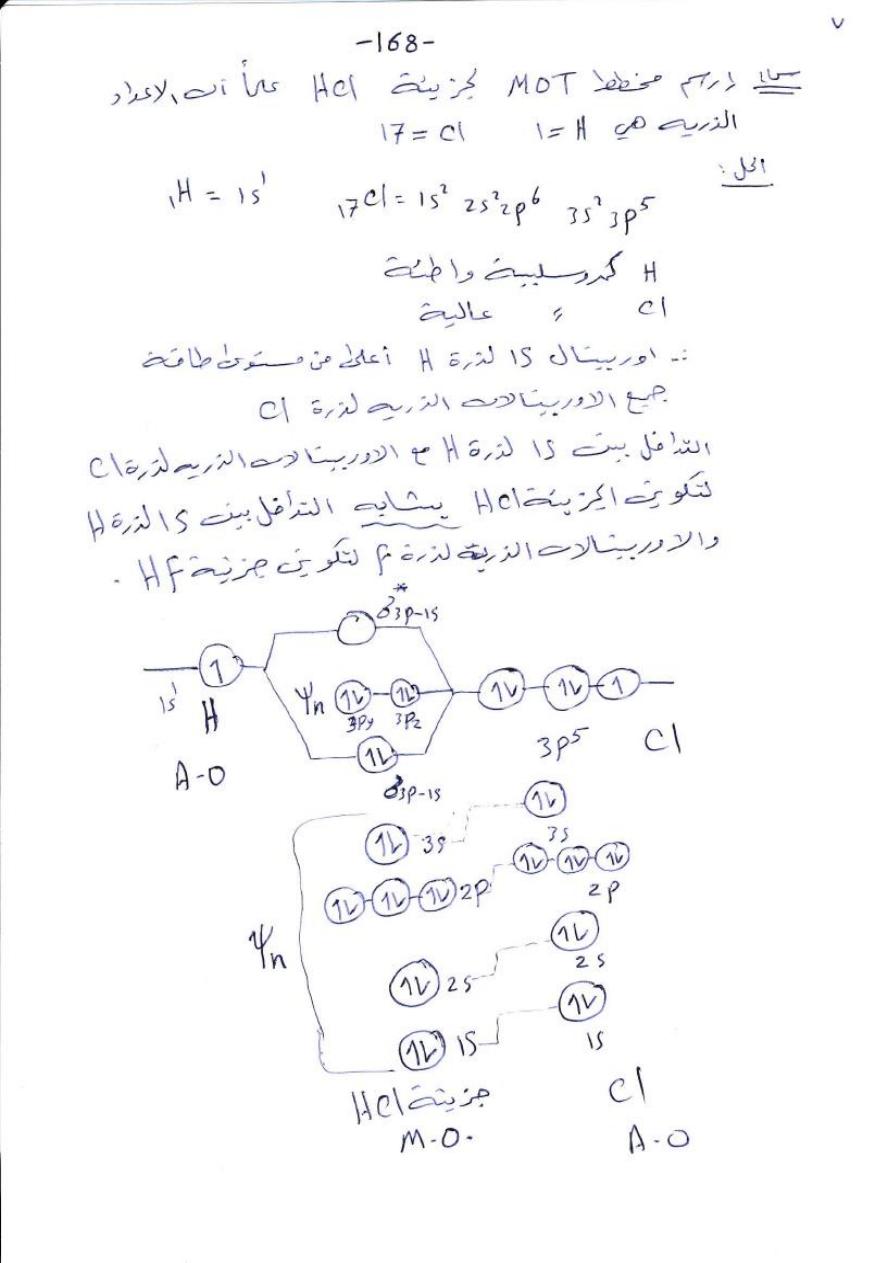 -168-
س/ ارسم مخطط MOT لجزيئة HCl علماً أن الاعداد
الذرية هي 1=H 17=Cl
الحل:
₁H = 1s¹ ₁₇Cl = 1s² 2s² 2p⁶ 3s² 3p⁵
H كهروسلبية واطئة
Cl 〃 عالية
∴ اوربيتال 1S لذرة H أعلى من مستوى طاقة
جميع الاوربيتالات الذريه لذرة Cl
التداخل بين 1S لذرة H مع الاوربيتالات الذريه لذرة Cl
لتكوين الجزيئة HCl يشابه التداخل بين 1S لذرة H
والاوربيتالات الذرية لذرة F لتكوين جزئية HF .
σ*3p-1s
1s¹ H
Ψn 3Py 3Pz
3p⁵ Cl
A-O
σ3p-1s
3s 3s
2p 2p
Ψn
2s 2s
1s 1s
جزيئة HCl Cl
M.O. A-O